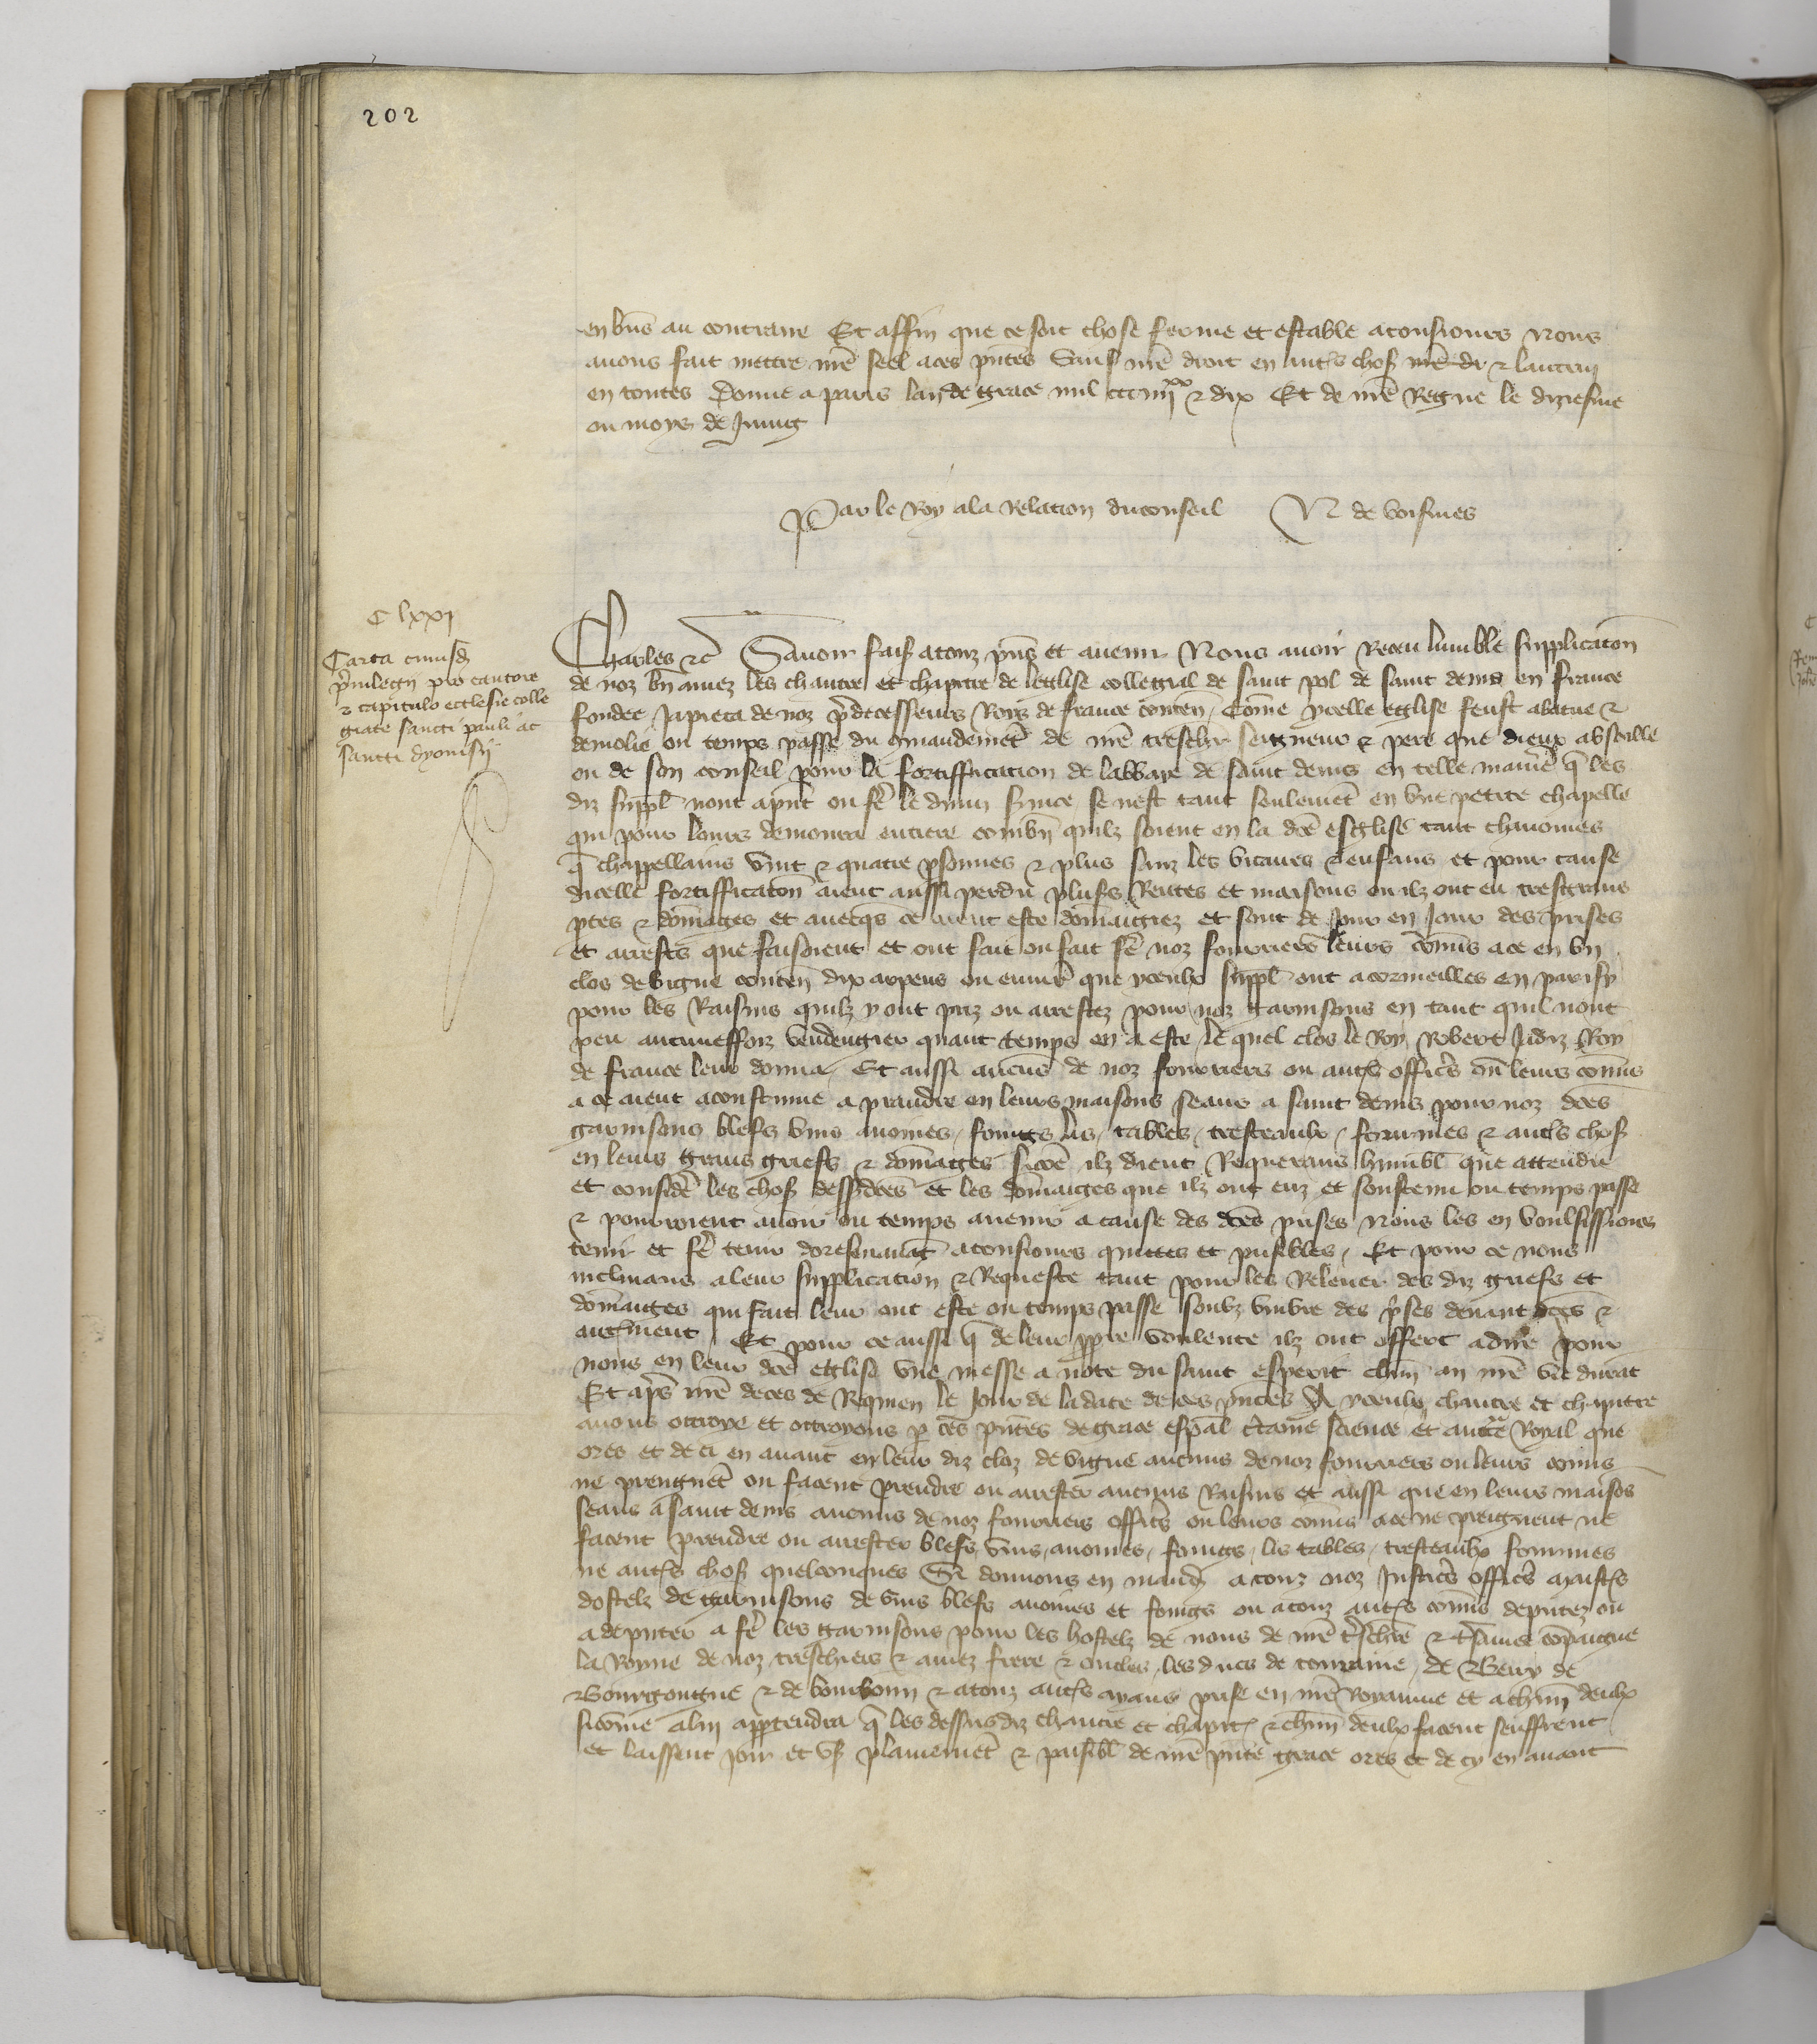 202
en briefs au contraire Et affin que ce soit chose ferme et estable atousiours Nous
auons fait mettre nr̄e seel aces pn̄tes Sauf nr̄e droit en autr̄s choſ & lautruy
en toutes Donne a paris lan de grace mil ccc iiijxx & dix Et de nr̄e Regne le diziesme
ou moys de Juing
Par le Roy ala Relacion du conseil N de voisines
C lxxj
Carta cuiusd̄
p̄uilegij pro cantore
& capitulo ecclesie colle
giate sancti pauli ac
sancti dyonisij
Charles &c̄ Sauoir faisɜ atouz pn̄s et auenir Nous auoir Receu lumble supplicacōn
de noz bn̄ amez les chantre et chapitre de leglise collegial de saint pol de saint denis en france
fondee Japieca de noz p̄decesseurs Roys de france conten̄ Com̄e ycelle eglise feust abatue &
demolie ou temps passe du cōmandemēt de nr̄e treschr̄ seigneur & pere que dieux absoille
ou de son conseil pour la fortifficacion de labbaye de saint denis en telle maniēr q̄ les
diz supp̄l nont apn̄t ou fēr le diuin s̄uice se nest tant seulemēt en vne petite chapelle
qui pour lors demoura entiere combn̄ quilz soient en la dc̄e esglise tant chanoines
q̄ chappellains vint & quatre p̄sonnes & plus sanz les vicaires & enfans et pour cause
dicelle fortifficacōn aient aussi perdu plusr̄s Rentes et maisons ou ilz ont eu tresgrans
p̄tes & dōmages et auecqs ce aient este dōmaigiez et sont de Jour en Jour des prises
et arrests que faisoient et ont fait ou fait fēr noz fourriers leurs cōmis a ce en vn
clos de vigne conten̄ dix arpens ou enuir̄ que yceulx supp̄l ont a cormeilles en parisy
pour les Raisins quilz y ont priz ou arrestez pour noz garnisons en tant quil nont
peu aucuneffoiz vendengier quant temps en a este le quel clos le Roy Robert Jadiz Roy
de france leur donna Et aussi aucuns de noz fourriers ou autr̄s officr̄s ou leurs cōmis
a ce aient acoustume a prandre en leurs maisons seans a saint denis pour noz dc̄es
garnisons blefs vins auoines, foings lis, tables, tresteaulx, fourmes & autr̄s choſ
en leurs grans griefs & dōmages sicōe ilz dient Requerans humbl̄ que attendu
et considēr les choſ dessusdc̄es et les dōmaiges que ilz ont euz et soustenu ou temps passe
& pourroient auoir ou temps auenir a cause des dc̄es prises Nous les en voulsissions
tenir et fēr tenir doresenauāt atousiours quittes et paisibles, Et pour ce nous
inclinans aleur supplicacion & Requeste tant pour les Releuer des diz griefs et
dōmaiges qui fait leur ont este ou temps passe soubz vmbre des p̄ses deuant dc̄es &
autr̄ment Et pour ce aussi q̄ de leur p̄pre voulente ilz ont offert a dire pour
nous en leur dc̄e eglise vne messe a note du saint esperit chūn an nr̄e vie durāt
Et apr̄s nr̄e deces de Requien le Jour de la date de ces pn̄tes A yceulx chantre et chapitre
auons ottroye et ottroyons p̄ ces pn̄tes de grace esp̄al c̄taine science et auct̄e Royal que
ores et de ci en auant en leur diz cloz de vigne aucuns de noz fourriers ou leurs cōmis
ne prengnēt ou facent prendre ou arrester aucuns Raisins et aussi que en leurs maisōs
seans a saint denis aucuns de noz fourriers officr̄s ou leurs cōmis a ce ne preignent ne
facent prendre ou arrester blefs, vins, auoines, foings, lis tables, tresteaulx fourmes
ne autr̄s choſ quelconques Si donnons en mand̄ a touz noz Justicr̄s officr̄s maistr̄s
dostelz de garnisons de vins blefs auoines et foings ou atouz autr̄s cōmis deputez ou
a deputer a fēr les garnisons pour les hostelz de nous de nr̄e tr̄schēre & tr̄samee cōpaigne
la Royne de noz treschiers & amez frere & oncles, les ducs de touraine, de Berry de
Bourgongne & de bourbonn & atouz autr̄s ayans prise en nr̄e Royaume et achūn deulx
sicōme a lui app̄tendra q̄ les dessusdiz chantre et chapitr̄ & chūn deulx facent seuffrent
et laissent Joir et vſ plainemēt & paisibl̄ de nr̄e pn̄te grace ores et de cy en auant